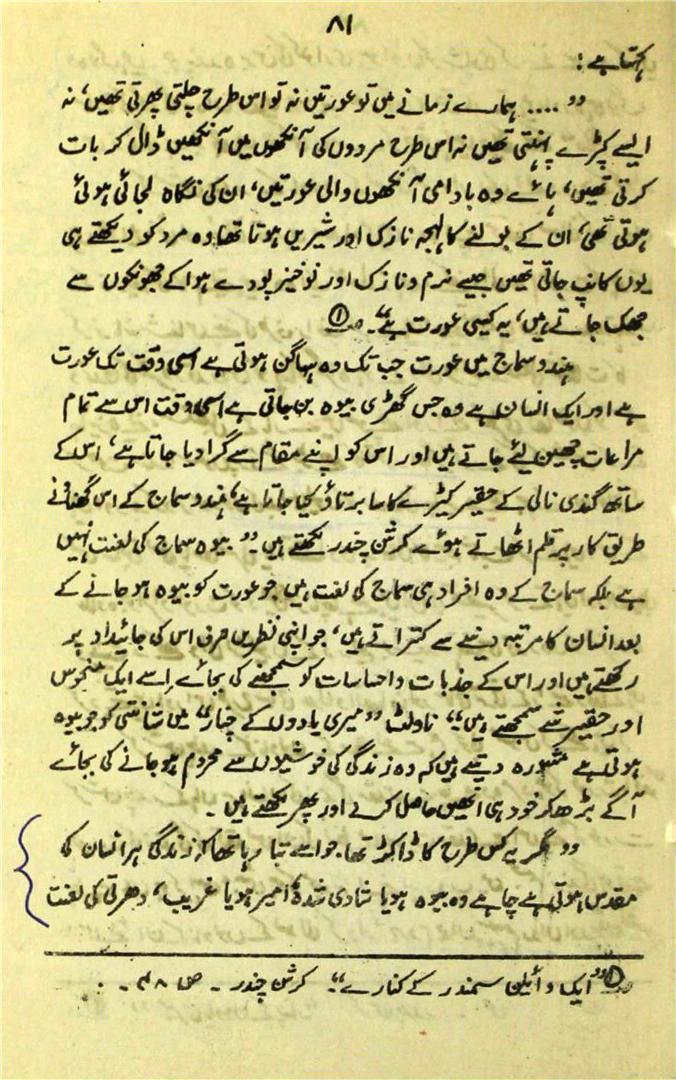 ۸۱
کہتا ہے :
” .... ہمارے زمانے میں تو عورتیں نہ تو اس طرح چلتی پھرتی تھیں، نہ
ایسے کپڑے پہنتی تھیں نہ اس طرح مردوں کی آنکھوں میں آنکھیں ڈال کر بات
کرتی تھیں، ہائے وہ بادامی آنکھوں والی عورتیں، ان کی نگاہ لجائی ہوئی
ہوتی تھی، ان کے بولنے کا لہجہ نازک اور شیریں ہوتا تھا وہ مرد کو دیکھتے ہی
یوں کانپ جاتی تھیں جیسے نرم و نازک اور نوخیز پودے ہوا کے جھونکوں سے
جھک جاتے ہیں، یہ کیسی عورت ہے“۔ ①
ہندو سماج میں عورت جب تک وہ سہاگن ہوتی ہے اسی وقت تک عورت
ہے اور ایک انسان ہے وہ جس گھڑی بیوہ بن جاتی ہے اسی وقت اس سے تمام
مراعات چھین لئے جاتے ہیں اور اس کو اپنے مقام سے گرا دیا جاتا ہے، اس کے
ساتھ گندی نالی کے حقیر کیڑے کا سا برتاؤ کیا جاتا ہے، ہندو سماج کے اس گھناؤنے
طریق کار پر قلم اٹھاتے ہوئے کرشن چندر لکھتے ہیں۔ ” بیوہ سماج کی لعنت نہیں
ہے بلکہ سماج کے وہ افراد ہی سماج کی لعنت ہیں جو عورت کو بیوہ ہو جانے کے
بعد انسان کا مرتبہ دینے سے کتراتے ہیں، جو اپنی نظریں صرف اس کی جائیداد پر
رکھتے ہیں اور اس کے جذبات و احساسات کو سمجھنے کی بجائے اِسے ایک منحوس
اور حقیر شے سمجھتے ہیں“، ناولٹ ” میری یادوں کے چنار“ میں شانتی کو جو بیوہ
ہوتی ہے مشورہ دیتے ہیں کہ وہ زندگی کی خوشیوں سے محروم ہو جانے کی بجائے
آگے بڑھ کر خود ہی انھیں حاصل کرلے اور پھر لکھتے ہیں ۔
” مگر یہ کس طرح کا ڈاکٹر تھا جو اسے بتا رہا تھا کہ زندگی ہر انسان کی
مقدس ہوتی ہے چاہے وہ بیوہ ہو یا شادی شدہ، امیر ہو یا غریب، دھرتی کی لعنت
① ” ایک وائیلن سمندر کے کنارے“۔ کرشن چندر ۔ ص ۴۸ ۔